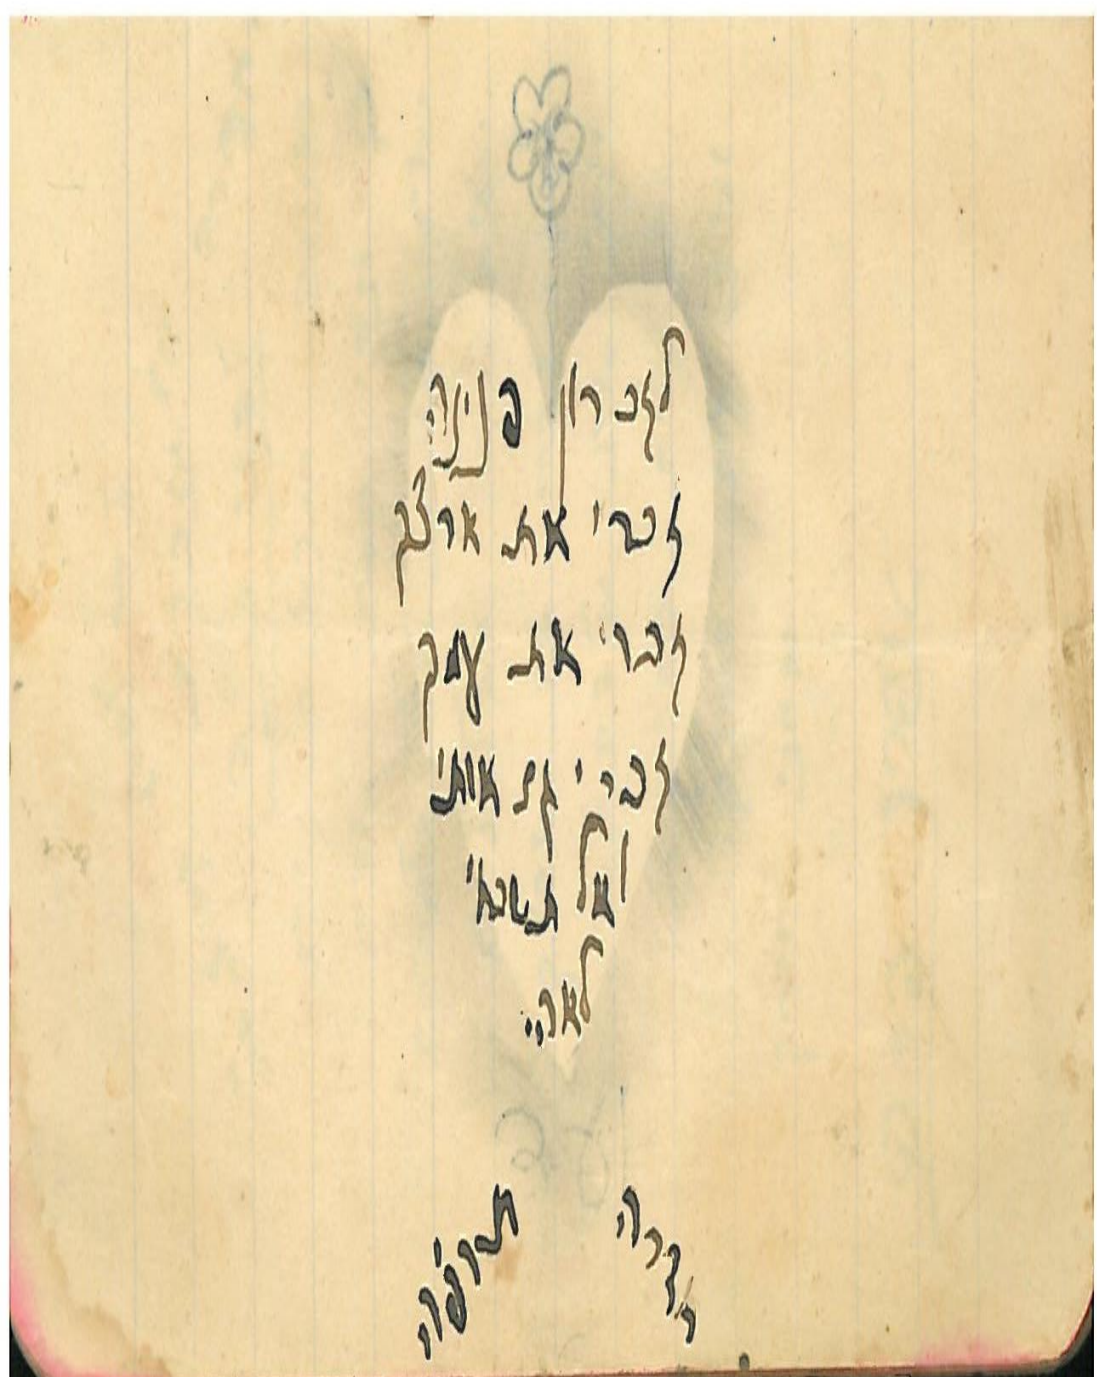 לזכרון פנינה
זכרי את ארצך
זכרי את עמך
זכרי גם אותי
ואל תשכחי
לאה